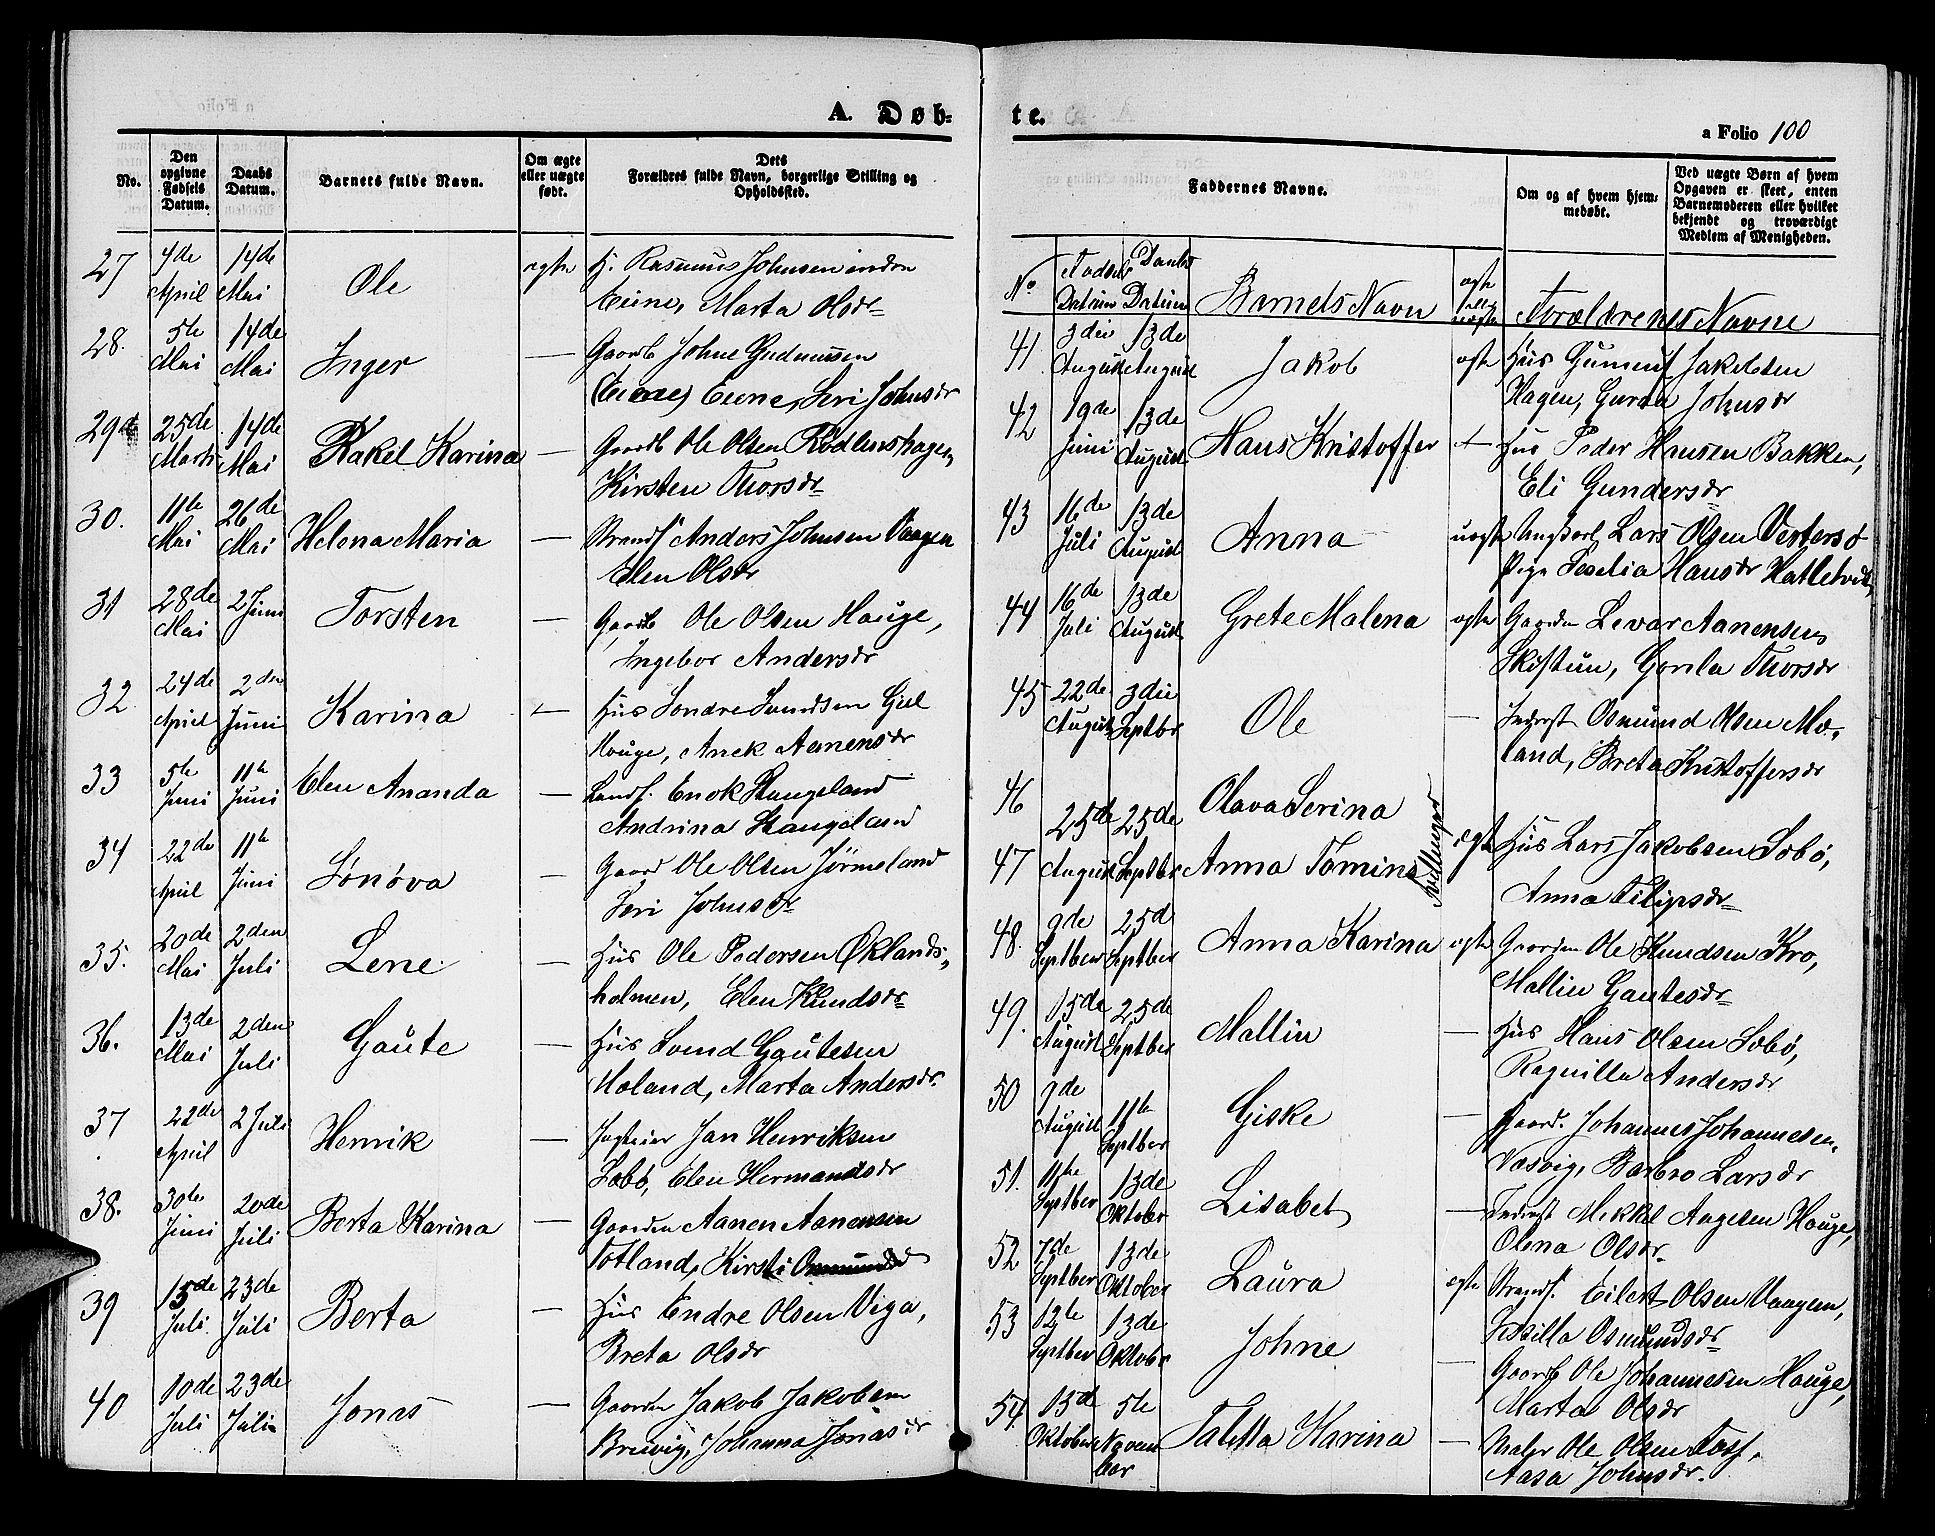 A. Døb-
No.
Den opgivne Fødsels Datum.
Daabs Datum.
Barnets fulde Navn.
Om ægte eller uægte født.
Dets
Forældres fulde Navn, borgerlige Stilling og Opholdssted.
27 4de April 14de Mai Ole egte H. Rasmus Johnsen indre
Eiene, Marta Olsdr
28. 5te Mai 14de Mai Inger — Gaardb Johne Gudmusen
(Eiene) Eiene, Seri Johnsdr
29 25de Marts 14de Mai Rakel Karina — Gaardb Ole Olsen Rødlenshagen,
Kirsten Thorsdr
30. 11te Mai 26de Mai Helena Maria — Strands. Anders Johnsen Vaagen
Elen Olsdr
31 28de Mai 2 Juni Torsten — Gaardb Ole Olsen Hauge,
Ingebor Andersdr
32 24de April 2den Juni Karina — Hus Sondre Svendsen Giil
Houge, Anek Aanensdr
33 5te Juni 11te Juni Elen Ananda — Landh. Enok Haugeland
Andrina Haugeland
34 22de April 11te Juni Sønøva — Gaard Ole Olsen Jørmeland
Seri Johnsdr
35. 20de Mai 2den Juli Lene — Hus Ole Pedersen Øklands-
holmen, Elen Knudsdr
36. 13de Mai 2den Juli Gaute — Hus Svend Gautesen
Moland, Marta Andersdr.
37 22de April 2 Juli Henrik — Jan Henriksen
Søbø, Elen Hermandsdr
38. 30te Juni 20de Juli Berta Karina — Gaarden Aanen Aanensen
Totland, Kirsti Osmundsd
39 15de Juli 23de Juli Berta — Hus Endre Olsen Viga,
Breta Olsdr
40 10de Juli 23de Juli Jonas — Gaarden Jakob Jakobsen
Breivig, Johanna Jonasdr
te.
a Folio 100
Faddernes Navne.
Om og af hvem hjemmedøbt.
Ved uægte Børn af hvem Opgaven er skeet, enten Barnemoderen eller hvilket bekjendt og troværdigt Medlem af Menigheden.
No Fødsels Datum Daabs Datum Barnets Navn egte eller uegte Forældrenes Navne
41. 3die August 13de August Jakob egte Hus Gumund Jakobsen
Hagen, Guroa Johnsdr
42 19de Juni 13de August Hans Kristoffer — Hus Peder Hansen Bakken,
Eli Gundersdr
43 16de Juli 13de August Anna uegte Ungkarl Lars Olsen Vestersø
Pige Seselia Hansdr Hattelvik
44 16de Juli 13de August Grete Malena egte Gaarden Levar Aanensen
Skiftun, Gorela Thorsdr
45 22de August 3die Septbr Ole — Inderst Osmund Olsen Mo-
land, Breta Kristoffersdr
46 Olava Serina
47 25de August 25de Septber Anna Tomina Tvillinger egte Hus Lars Jakobsen Søbø,
Anna Filipsdr
48. 9de Septber 25d Septber Anna Karina egte Gaarden Ole Knudsen Kro,
Mallin Gautesdr
49. 15de August 25de Septber Mallin — Hus Hans Olsen Søbø,
Ragnilla Andersdr
50 9de August 11te Septber Giske — Gaard. Johannes Johannesen,
Vosvig, Barbro Larsdr
51. 11te Septber 13de Oktober Lisabet — Inderst Mikkel Angelsen Houge,
Olena Olsdr.
52 7de Septber 13de Oktober Laura egte Strands. Eilert Olsen Vaagen,
Sissilla Osmundsdr
53 12te Septber 13de Oktobr Johne — Gaardb Ole Johannesen Houge,
Marta Olsdr
54 13d Oktober 5te November Taletta Karina — Maler Ole Olsen Tosf.
Aasa Johnsdr.